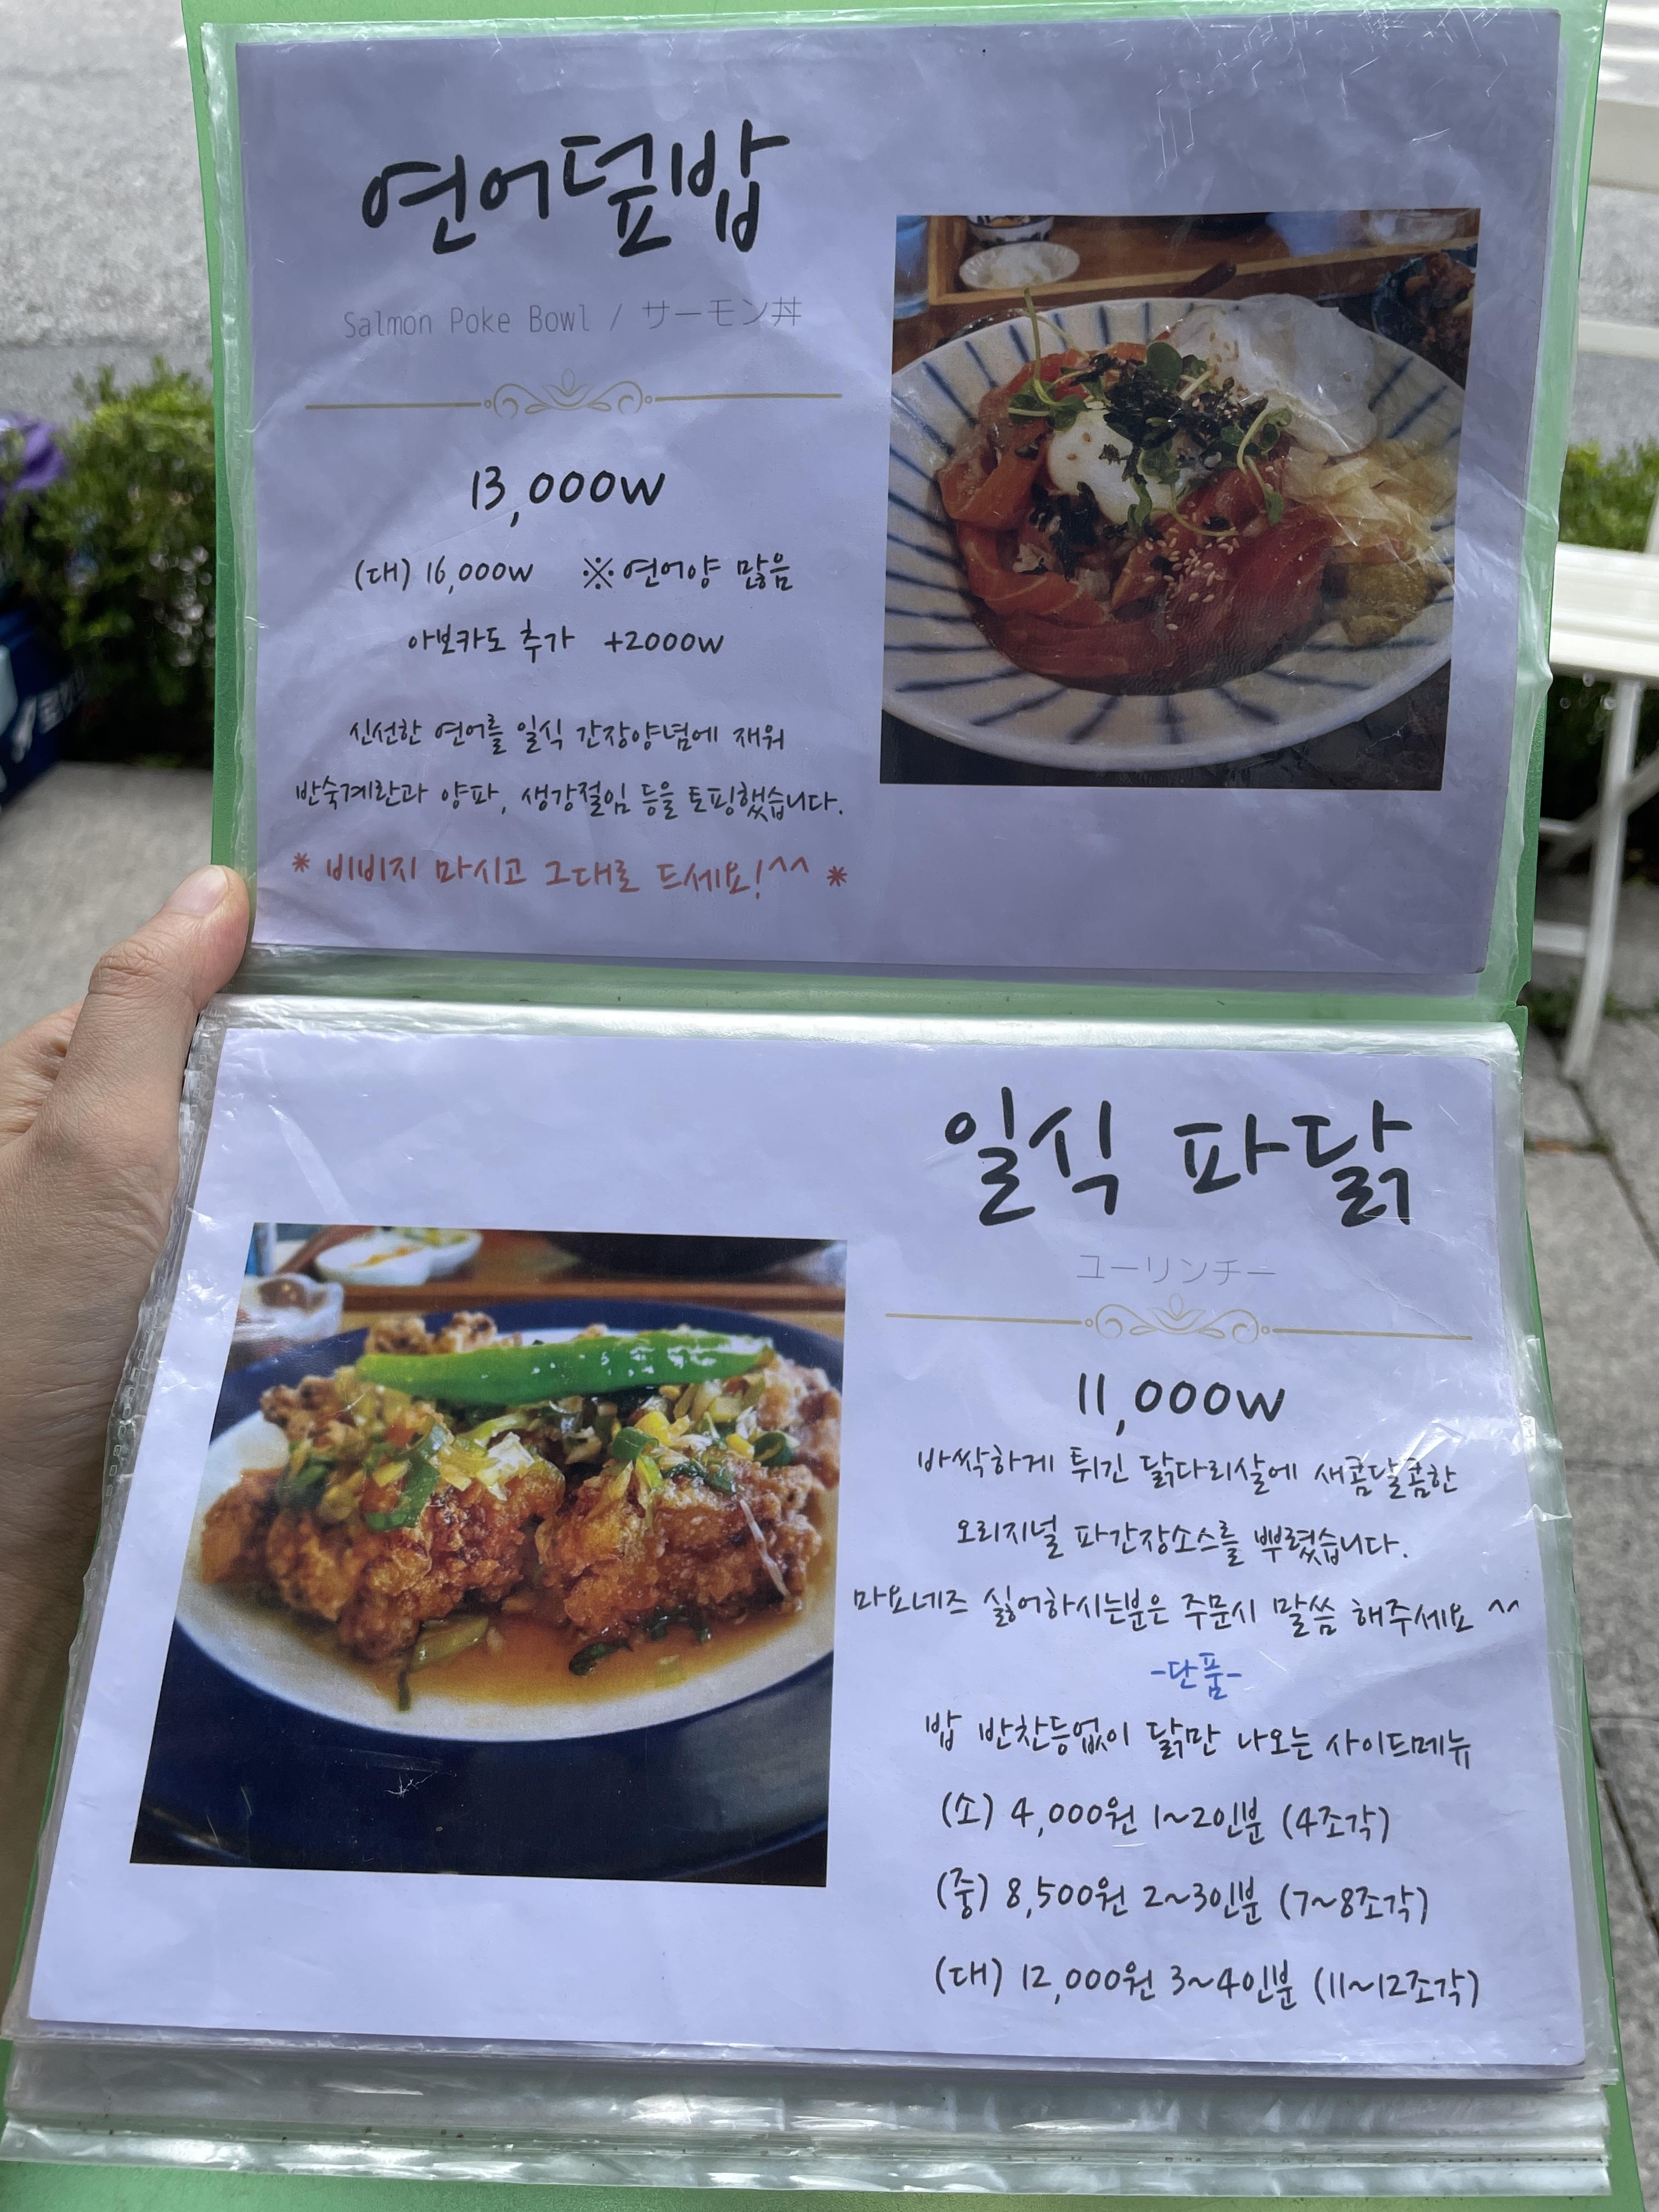 연어덮밥
Salmon Poke Bowl / サーモン丼
13,000w
(대) 16,000w ※연어양 많음
아보카도 추가 +2000w
신선한 연어를 일식 간장양념에 재워
반숙계란과 양파, 생강절임 등을 토핑했습니다.
* 비비지 마시고 그대로 드세요!^^ *
일식 파닭
ユーリンチー
11,000w
바싹하게 튀긴 닭다리살에 새콤달콤한
오리지널 파간장소스를 뿌렸습니다.
마요네즈 싫어하시는분은 주문시 말씀 해주세요 ^^
-단품-
밥 반찬등없이 닭만 나오는 사이드메뉴
(소) 4,000원 1~2인분 (4조각)
(중) 8,500원 2~3인분 (7~8조각)
(대) 12,000원 3~4인분 (11~12조각)